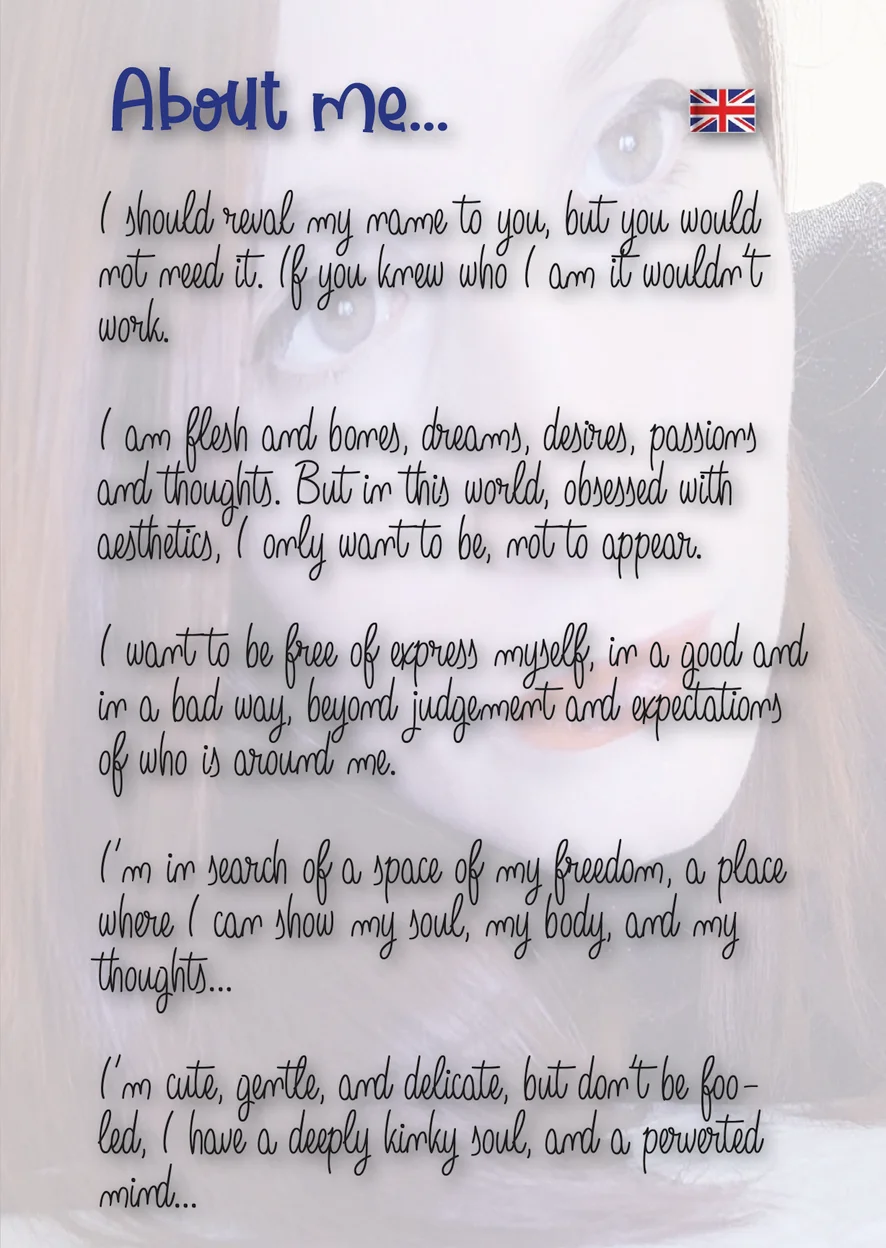 About me...
I should reval my name to you, but you would
not need it. If you knew who I am it wouldn't
work.
I am flesh and bones, dreams, desires, passions
and thoughts. But in this world, obsessed with
aesthetics, I only want to be, not to appear.
I want to be free of express myself, in a good and
in a bad way, beyond judgement and expectations
of who is around me.
I'm in search of a space of my freedom, a place
where I can show my soul, my body, and my
thoughts...
I'm cute, gentle, and delicate, but don't be foo-
led, I have a deeply kinky soul, and a perverted
mind...